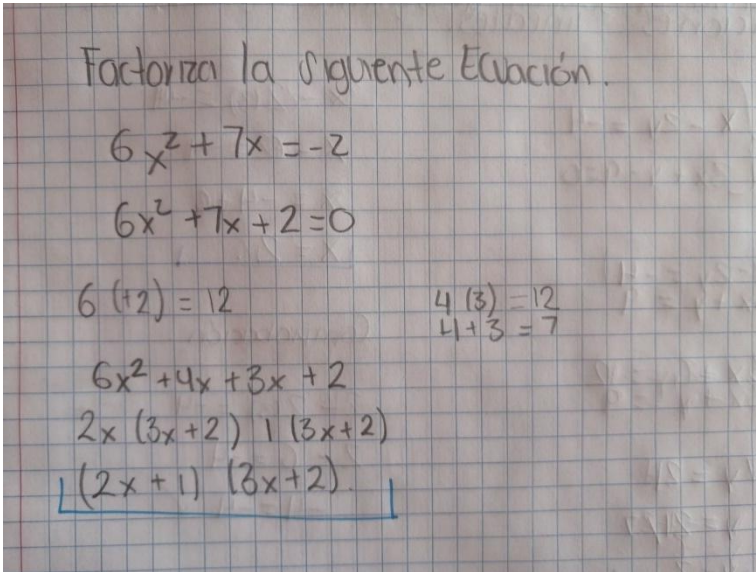 Factoriza la siguiente Ecuación.
6x² + 7x = -2
6x² + 7x + 2 = 0
6 (+2) = 12
4 (3) = 12
4 + 3 = 7
6x² + 4x + 3x + 2
2x (3x + 2) 1 (3x + 2)
(2x + 1) (3x + 2).